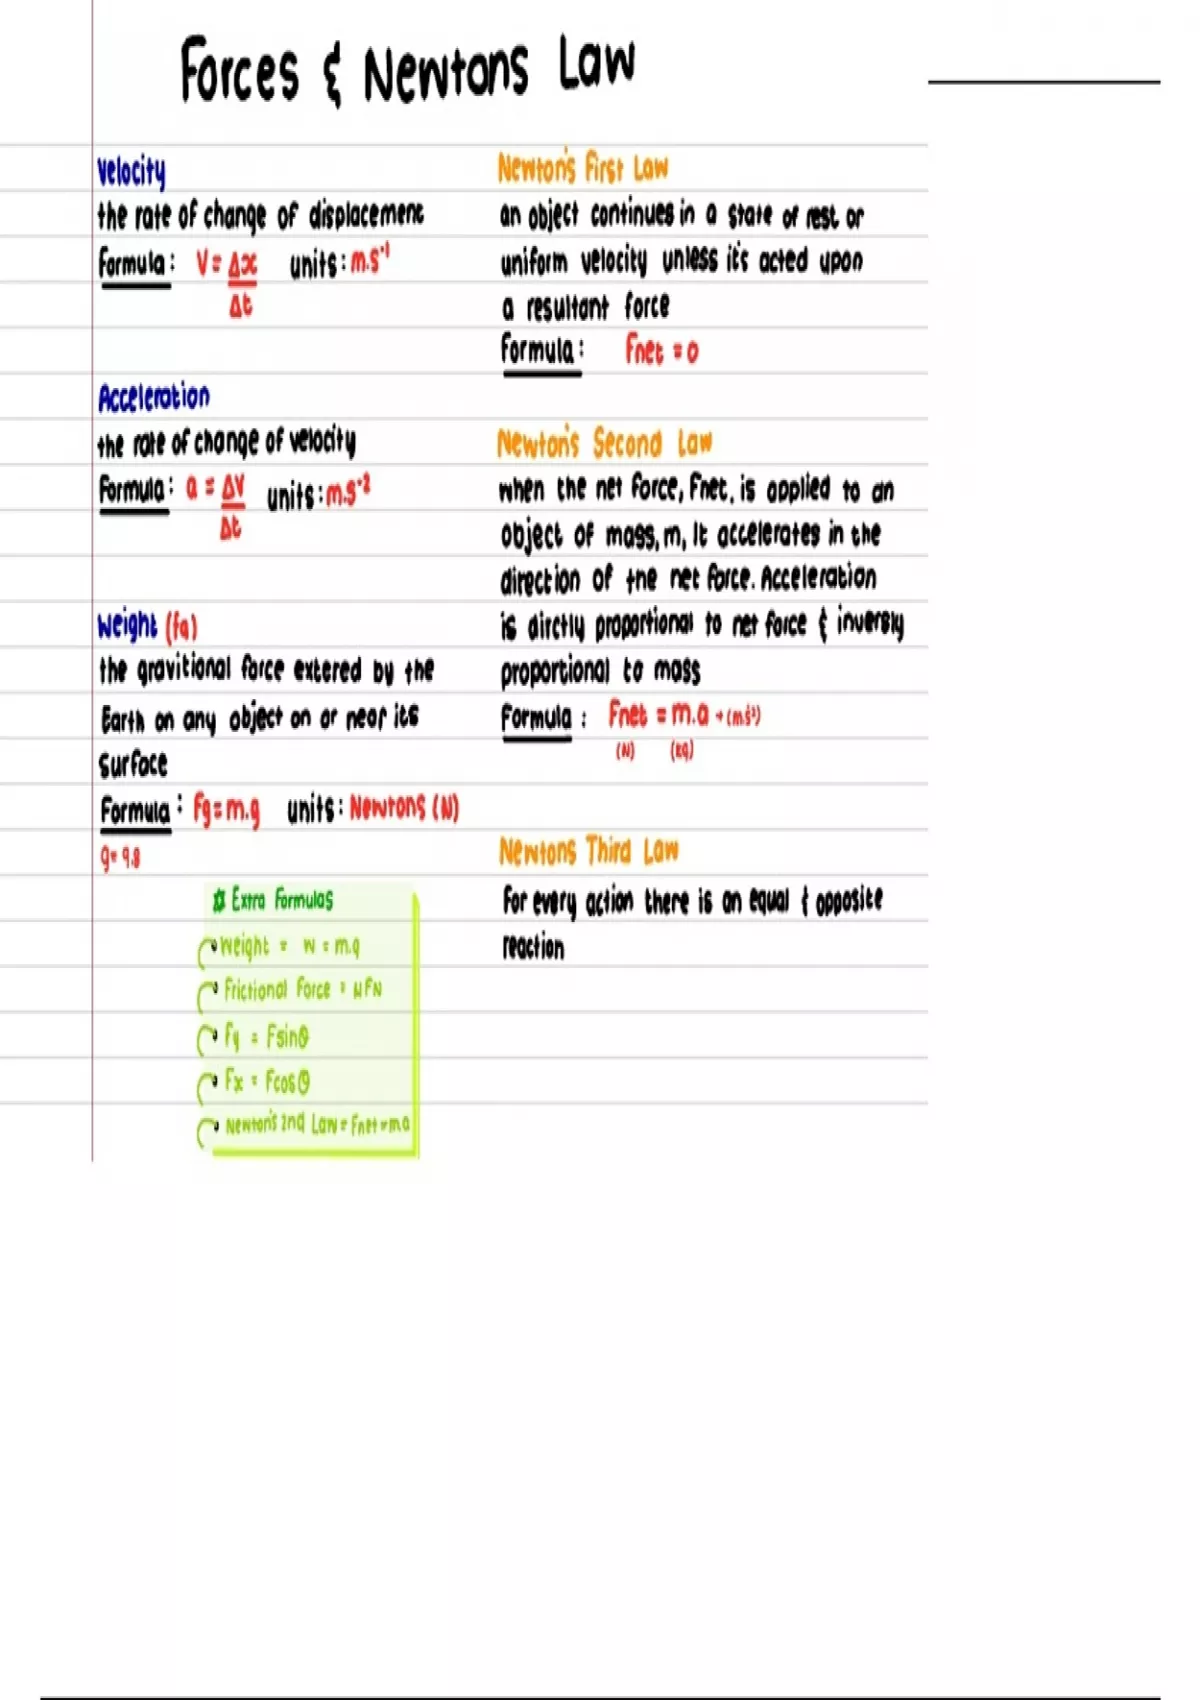 Forces & Newtons Law
Velocity
the rate of change of displacement
Formula: V = Δx units: m.s⁻¹
Δt
Acceleration
the rate of change of velocity
Formula: a = ΔV units: m.s⁻²
Δt
Weight (fg)
the gravitional force extered by the
Earth on any object on or near its
surface
Formula: Fg = m.g units: Newtons (N)
g = 9.8
Extra Formulas
Weight = W = m.g
Frictional Force = μFN
Fy = Fsinθ
Fx = Fcosθ
Newton's 2nd Law = Fnet = ma
Newton's First Law
an object continues in a state of rest or
uniform velocity unless it's acted upon
a resultant force
Formula: Fnet = 0
Newton's Second Law
when the net force, Fnet, is applied to an
object of mass, m, It accelerates in the
direction of the net force. Acceleration
is dirctly proportional to net force & inversly
proportional to mass
Formula: Fnet = m.a → (m.s²)
(N) (kg)
Newtons Third Law
For every action there is an equal & opposite
reaction